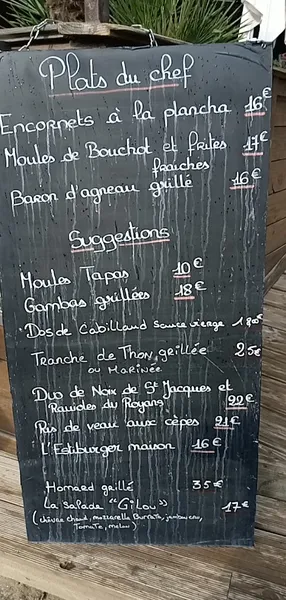 Plats du chef
Encornets à la plancha 16€
Moules de Bouchot et frites 17€
fraiches
Baron d'agneau grillé 16€
Suggestions
Moules Tapas 10€
Gambas grillées 18€
Dos de Cabillaud sauce vierge 18,00€
Tranche de Thon grillée 25€
ou Marinée
Duo de Noix de St Jacques et
Ravioles du Royans 22€
Ris de veau aux cèpes 21€
L'Estiburger maison 16€
Homard grillé 35€
La salade "Gilou" 17€
(chèvre chaud, mozzarella Burrata, jambon cru,
Tomate, melon)